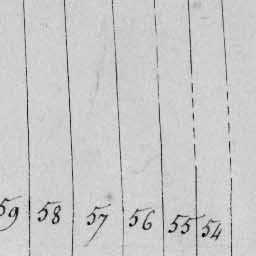 59 58 57 56 55 54